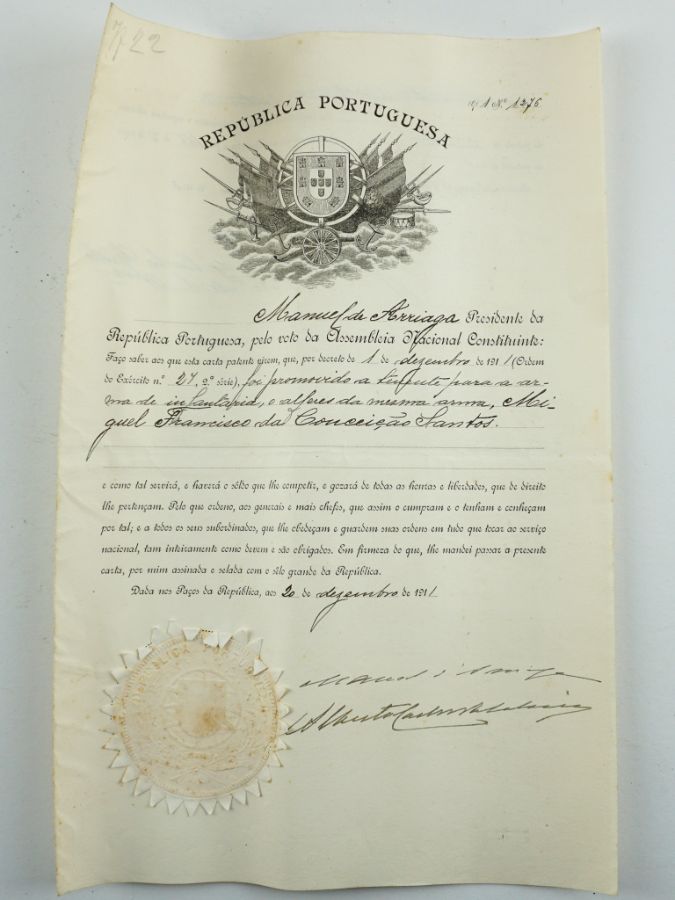 722
REPÚBLICA PORTUGUESA
1 N.º 1276
Manuel de Arriaga Presidente da
República Portuguesa, pelo voto da Assembleia Nacional Constituinte:
Faço saber aos que esta carta patente virem, que, por decreto de 1 de dezembro de 1911 (Ordem
do Exército n.º 27, 2.ª série), foi promovido a tenente para a ar-
ma de infantaria, o alferes da mesma arma, Mi-
guel Francisco da Conceição Santos.
e como tal servirá, e haverá o sôldo que lhe competir, e gozará de todas as honras e liberdades, que de direito
lhe pertençam. Pelo que ordeno, aos generais e mais chefes, que assim o cumpram e o tenham e conheçam
por tal; e a todos os seus subordinados, que lhe obedeçam e guardem suas ordens em tudo que tocar ao serviço
nacional, tam inteiramente como devem e são obrigados. Em firmeza do que, lhe mandei passar a presente
carta, por mim assinada e selada com o sêlo grande da República.
Dada nos Paços da República, aos 20 de dezembro de 1911.
REPUBLICA
Manuel d'Arriaga
Alberto Carlos